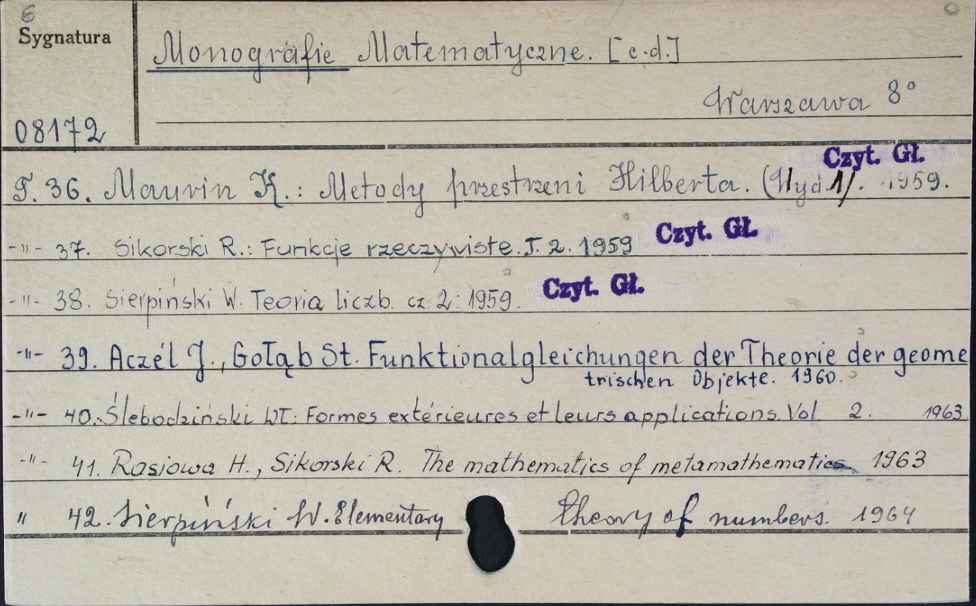 6
Sygnatura
Monografie Matematyczne. [c.d.]
Warszawa 8°
08172
Czyt. Gł.
T. 36. Maurin K.: Metody przestrzeni Hilberta. (Wyd. 1). 1959.
-"- 37. Sikorski R.: Funkcje rzeczywiste. T. 2. 1959 Czyt. Gł.
-"- 38. Sierpiński W. Teoria liczb. cz. 2. 1959. Czyt. Gł.
-"- 39. Aczél J., Gołąb St. Funktionalgleichungen der Theorie der geome
trischen Objekte. 1960.
-"- 40. Ślebodziński WŁ: Formes extérieures et leurs applications. Vol 2. 1963
-"- 41. Rasiowa H., Sikorski R. The mathematics of metamathematics. 1963
" 42. Sierpiński W. Elementary theory of numbers. 1964